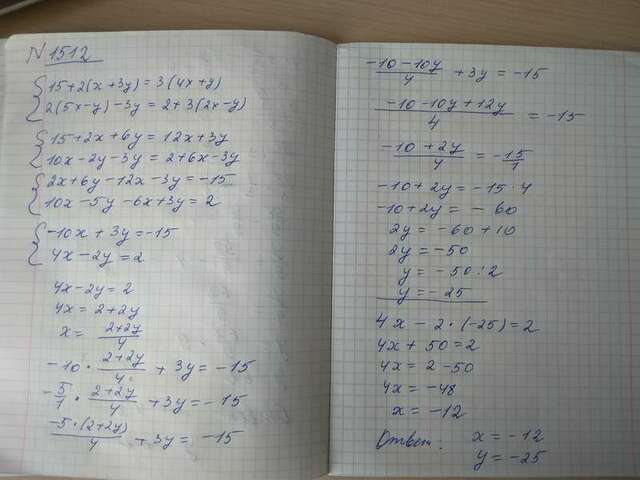 N 1512
15+2(x+3y)=3(4x+y)
2(5x-y)-3y=2+3(2x-y)
15+2x+6y=12x+3y
10x-2y-3y=2+6x-3y
2x+6y-12x-3y=-15
10x-5y-6x+3y=2
-10x+3y=-15
4x-2y=2
4x-2y=2
4x=2+2y
x=(2+2y)/4
-10·(2+2y)/4+3y=-15
-5/1·(2+2y)/4+3y=-15
(-5·(2+2y))/4+3y=-15
(-10-10y)/4+3y=-15
(-10-10y+12y)/4=-15
(-10+2y)/4=-15/1
-10+2y=-15·4
-10+2y=-60
2y=-60+10
2y=-50
y=-50:2
y=-25
4x-2·(-25)=2
4x+50=2
4x=2-50
4x=-48
x=-12
Ответ: x=-12
y=-25